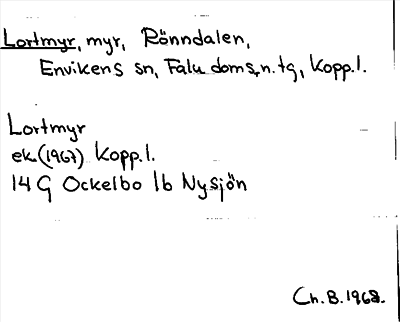 Lortmyr, myr, Rönndalen,
Envikens sn, Falu doms.n.tg, Kopp.l.
Lortmyr
ek.(1967) Kopp.l.
14 G Ockelbo 1b Nysjön
Ch.B.1968.